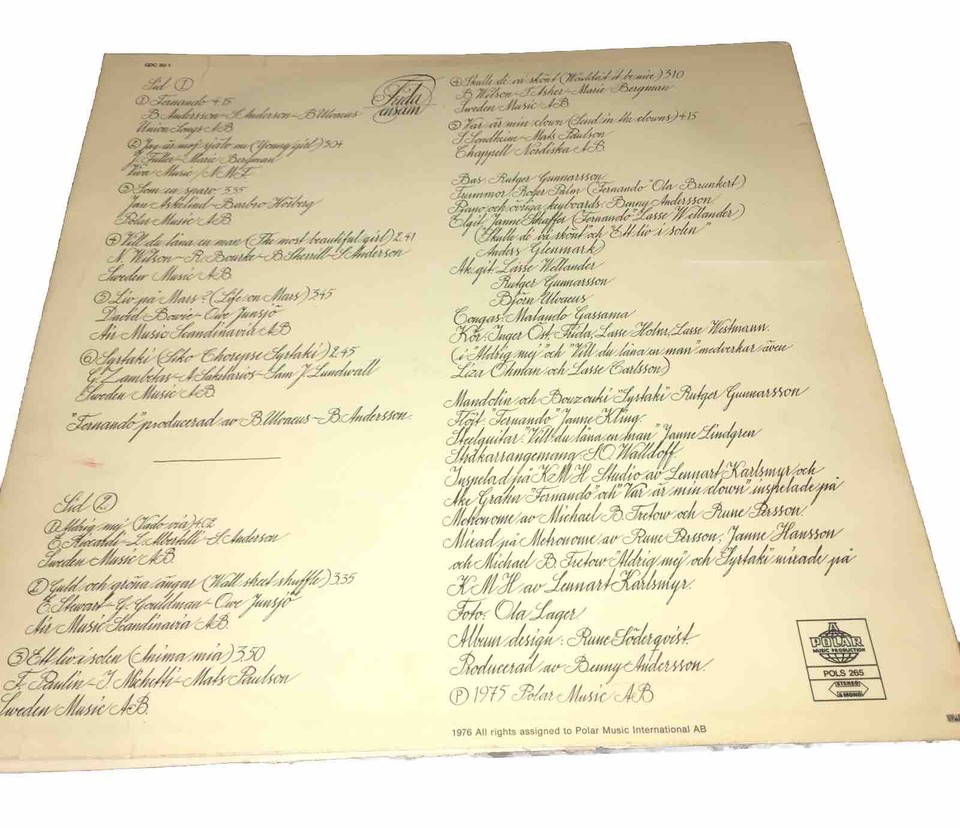 GDC 80 1
Sid 1
1 Fernando 4.15
B. Andersson - S. Anderson - B. Ulvaeus
Union Songs AB
2 Jag är mej själv nu (Young Girl) 3.04
J. Fuller - Marie Bergman
Viva Music / NMI
3 Som en sparv 3.35
Jan Askelind - Barbro Hörberg
Polar Music AB
4 Vill du låna en man (The most beautiful girl) 2.41
N. Wilson - R. Bourke - B. Sherrill - S. Anderson
Sweden Music AB
5 Liv på Mars? (Life on Mars) 3.45
David Bowie - Owe Junsjö
Air Music Scandinavia AB
6 Syrtaki (Siko Chorepse Syrtaki) 2.45
G. Zambetas - A. Sakellarios - Sam J. Lundwall
Sweden Music AB
"Fernando" producerad av B. Ulvaeus - B. Andersson.
Sid 2
1 Aldrig mej (Vado via) 4.02
E. Riccardi - L. Albertelli - S. Anderson
Sweden Music AB.
2 Guld och gröna ängar (Wall street shuffle) 3.35
E. Stewart - G. Gouldman - Owe Junsjö
Air Music Scandinavia AB.
3 Ett liv i solen (Anima mia) 3.50
F. Paulin - I. Michetti - Mats Paulson
Sweden Music AB.
Frida
ensam
4 Skulle de va skönt (Wouldn't it be nice) 3.10
B. Wilson - T. Asher - Marie Bergman
Sweden Music AB
5 Var är min clown (Send in the clowns) 4.15
S. Sondheim - Mats Paulson
Chappell Nordiska AB.
Bas: Rutger Gunnarsson
Trummor: Roger Palm ("Fernando" Ola Brunkert)
Piano och övriga keyboards: Benny Andersson
El.git: Janne Schaffer ("Fernando" Lasse Wellander)
("Skulle de va skönt" och "Ett liv i solen"
Anders Glenmark)
Ak.git: Lasse Wellander
Rutger Gunnarsson
Björn Ulvaeus
Congas: Malando Gassama
Kör: Inger Öst, Frida, Lasse Holm, Lasse Westmann.
(i "Aldrig mej" och "Vill du låna en man" medverkar även
Liza Öhman och Lasse Carlsson)
Mandolin och Bouzouki "Syrtaki" Rutger Gunnarsson
Flöjt: "Fernando" Janne Kling.
Steelguitar: "Vill du låna en man" Janne Lindgren
Stråkarrangemang: S.O. Walldoff.
Inspelad på KMH Studio av Lennart Karlsmyr och
Åke Grahn "Fernando" och "Var är min clown" inspelade på
Metronome av Michael B. Tretow och Rune Persson.
Mixad på Metronome av Rune Persson, Janne Hansson
och Michael B. Tretow "Aldrig mej" och "Syrtaki" mixade på
KMH av Lennart Karlsmyr.
Foto: Ola Lager
Album design: Rune Söderqvist
Producerad av Benny Andersson.
℗ 1975 Polar Music AB
1976 All rights assigned to Polar Music International AB
A
POLAR
MUSIC PRODUCTION
POLS 265
STEREO
& MONO